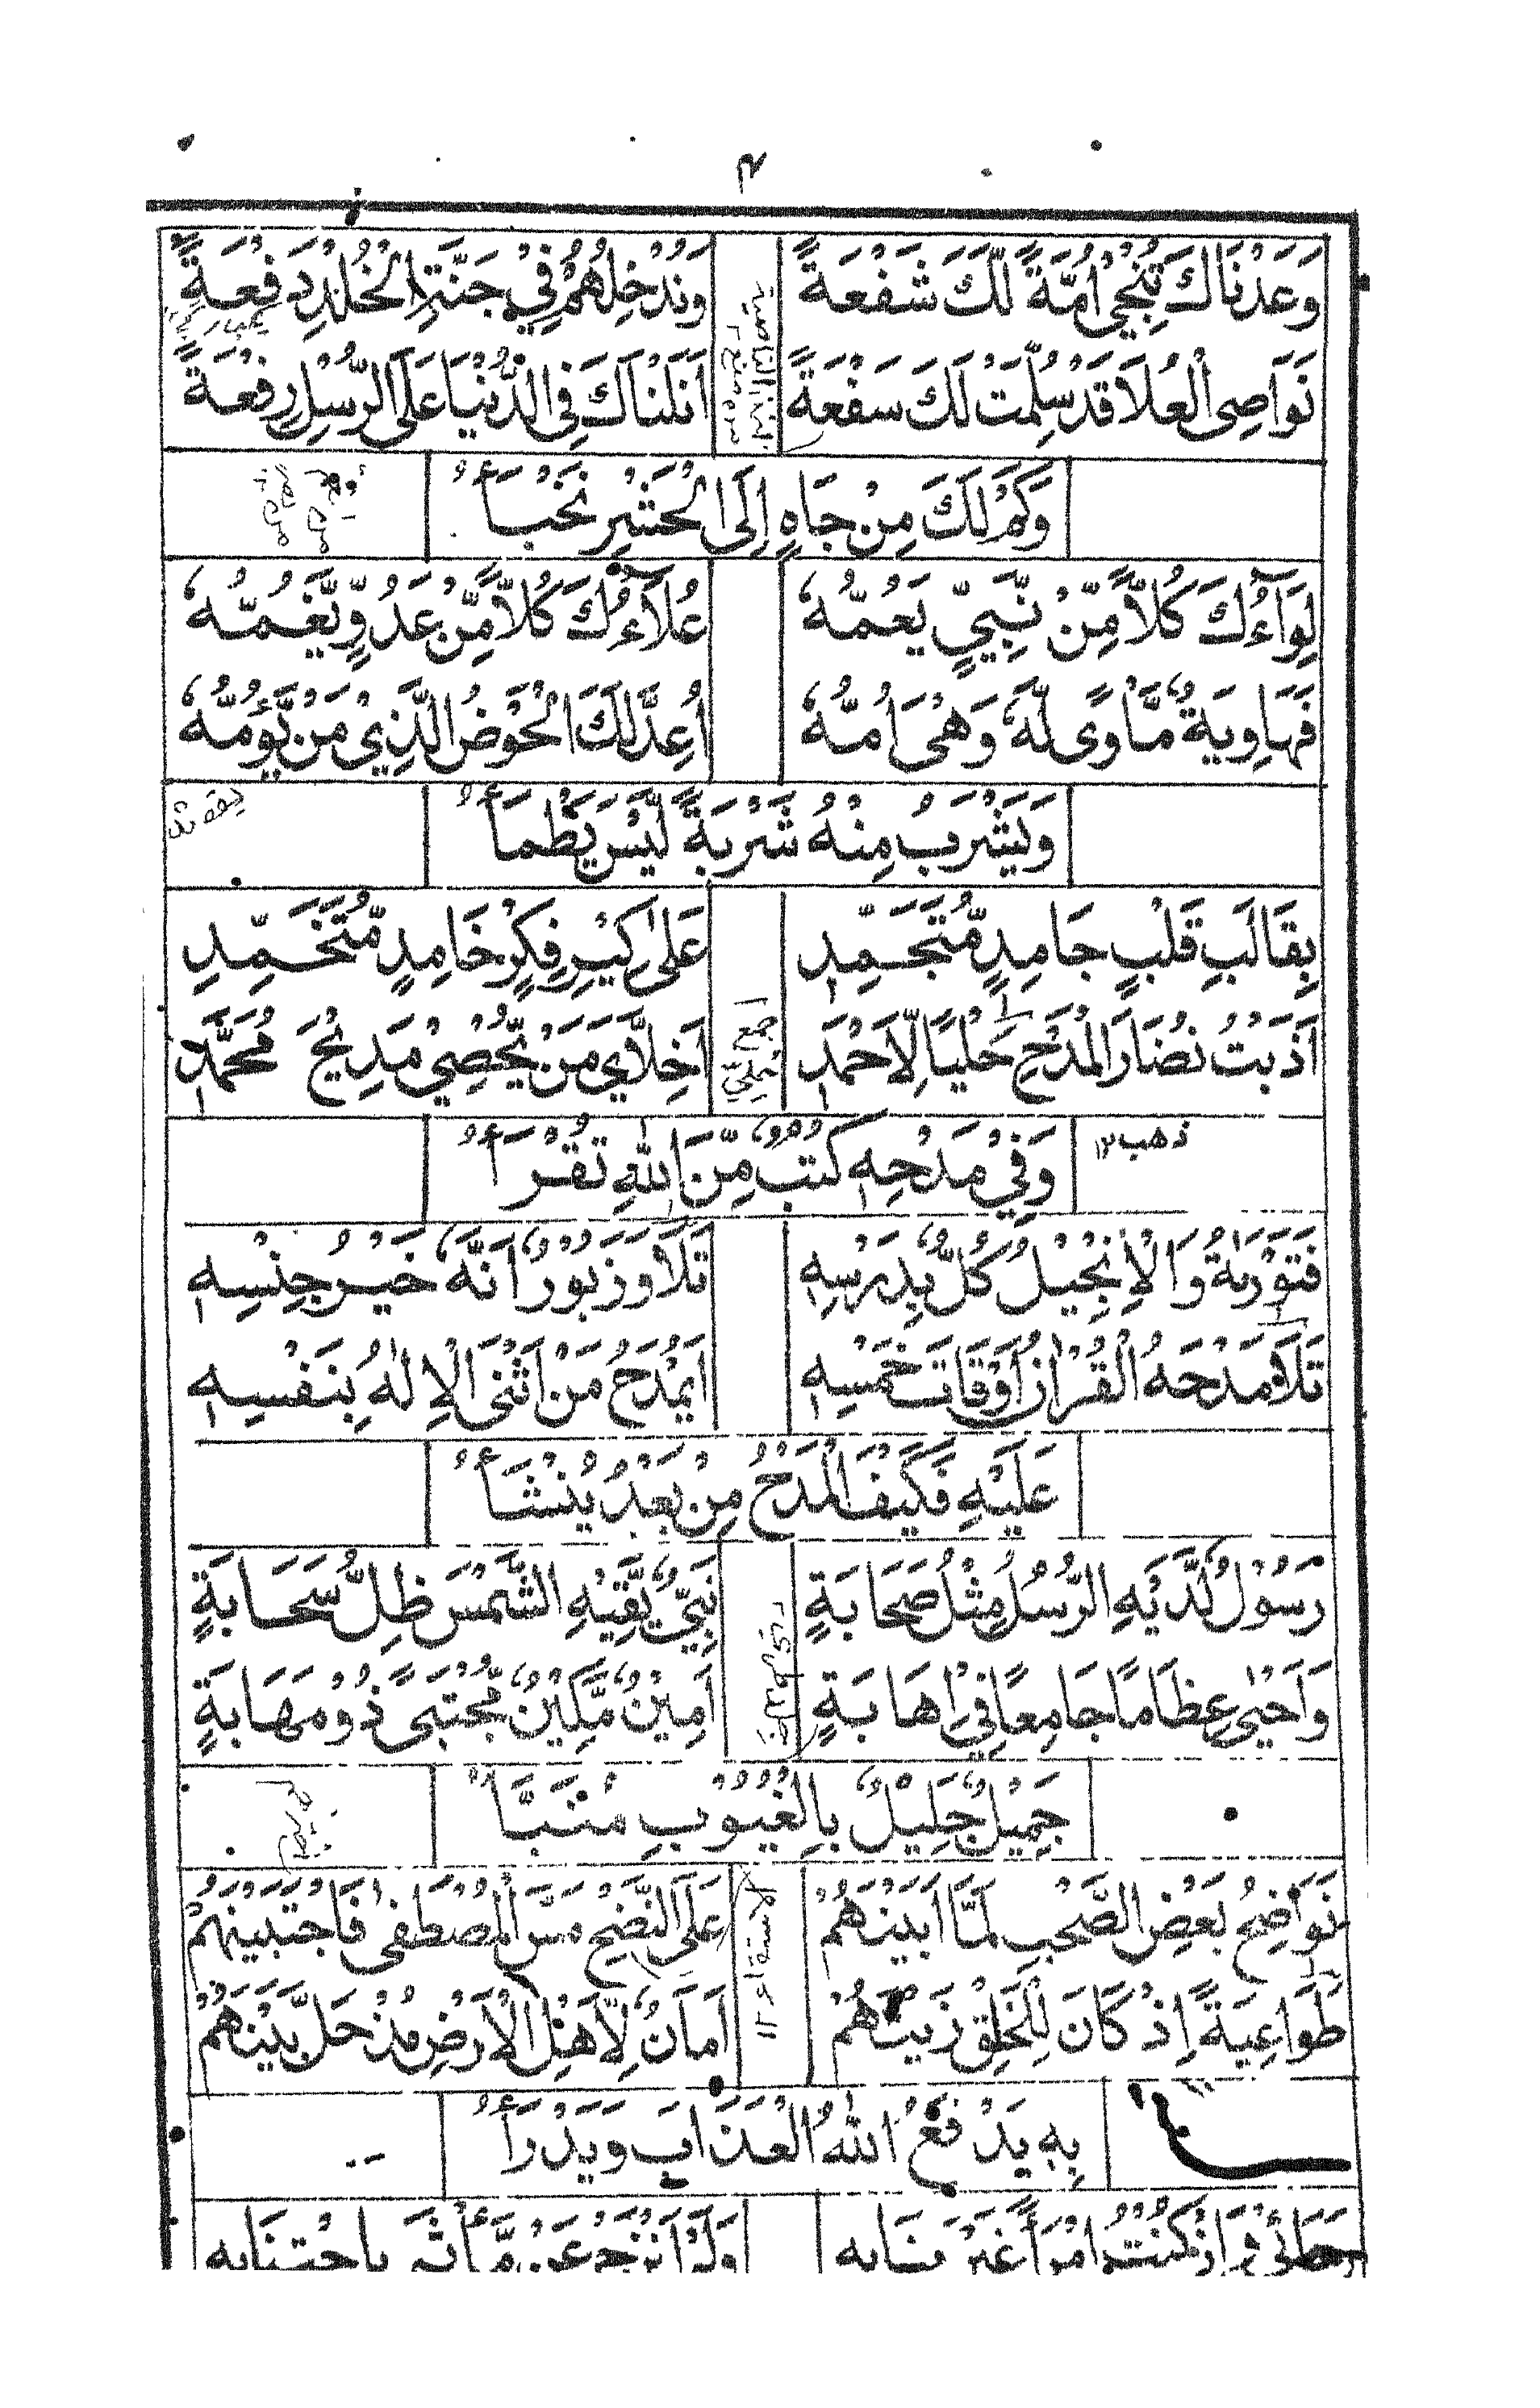 ٤
وَعَدْنَاكَ تُنْجِيْ اُمَّةً لَّكَ شَفْعَةً وَنُدْخِلُهُمْ فِيْ جَنَّةِ الْخُلْدِ دَفْعَةً
نَوَاصِى الْعُلَا قَدْ سُلِّمَتْ لَكَ سَفْعَةً اَنَلْنَاكَ فِى الدُّنْيَا عَلَى الرُّسْلِ رِفْعَةً
وَكَمْ لَكَ مِنْ جَاهٍ اِلَى الْحَشْرِ نُخْبَأُ
لِوَاءُكَ كُلًّا مِّنْ نَّبِيٍّ يَعُمُّهٗ عُلَاءُكَ كُلًّا مِّنْ عَدُوٍّ يَّغُمُّهٗ
فَهَاوِيَةٌ مَّاْوًى لَّهٗ وَهْىَ اُمُّهٗ اُعِدَّ لَكَ الْحَوْضُ الَّذِيْ مَنْ يَّؤُمُّهٗ
وَيَشْرَبُ مِنْهُ شَرْبَةً لَّيْسَ يَظْمَأُ
بِقَالَبِ قَلْبٍ جَامِدٍ مُّتَجَمِّدٖ عَلٰى كِيْرِ فِكْرٍ خَامِدٍ مُّتَخَمِّدِ
اَذَبْتُ نُضَارَ الْمَدْحِ حَلْيًا لِّاَحْمَدٖ اَخِلَّايَ مَنْ يُّحْصِيْ مَدِيْحَ مُحَمَّدٖ
ذهب١٢ وَفِيْ مَدْحِهٖ كُتُبٌ مِّنَ اللّٰهِ تُقْرَأُ
فَتَوْرٰىةُ وَالْاِنْجِيْلُ كُلٌّ بِدَرْسِهٖ تَلَا وَزَبُوْرٌ اَنَّهٗ خَيْرُ جِنْسِهٖ
تَلَا مَدْحَهُ الْقُرْاٰنُ اَوْقَاتَ خَمْسِهٖ اَيَمْدَحُ مَنْ اَثْنَى الْاِلٰهُ بِنَفْسِهٖ
عَلَيْهِ فَكَيْفَ الْمَدْحُ مِنْ بَعْدُ يُنْشَأُ
رَسُوْلٌ لَّدَيْهِ الرُّسُلُ مِثْلُ صَحَابَةٍ نَبِيٌّ يَّقِيْهِ الشَّمْسَ ظِلُّ سَحَابَةٍ
وَاَحْيٰى عِظَامًا جَامِعًا فِيْ اِهَابَةٍ اَمِيْنٌ مَّكِيْنٌ مُّجْتَبًى ذُوْ مَهَابَةٍ
جَمِيْلٌ جَلِيْلٌ بِالْغُيُوْبِ مُنَبَّأُ
نَوَاضِحُ بَعْضِ الصَّحْبِ لَمَّا اَبَيْنَهُمْ عَلَى النَّضْحِ مَسَّ الْمُصْطَفٰى فَاجْتَبَيْنَهُمْ
طَوَاعِيَةً اِذْ كَانَ لِلْخَلْقِ زَيْنَهُمْ اَمَانٌ لِّاَهْلِ الْاَرْضِ مُذْ حَلَّ بَيْنَهُمْ
بِهٖ يَدْفَعُ اللّٰهُ الْعَذَابَ وَيَدْرَأُ